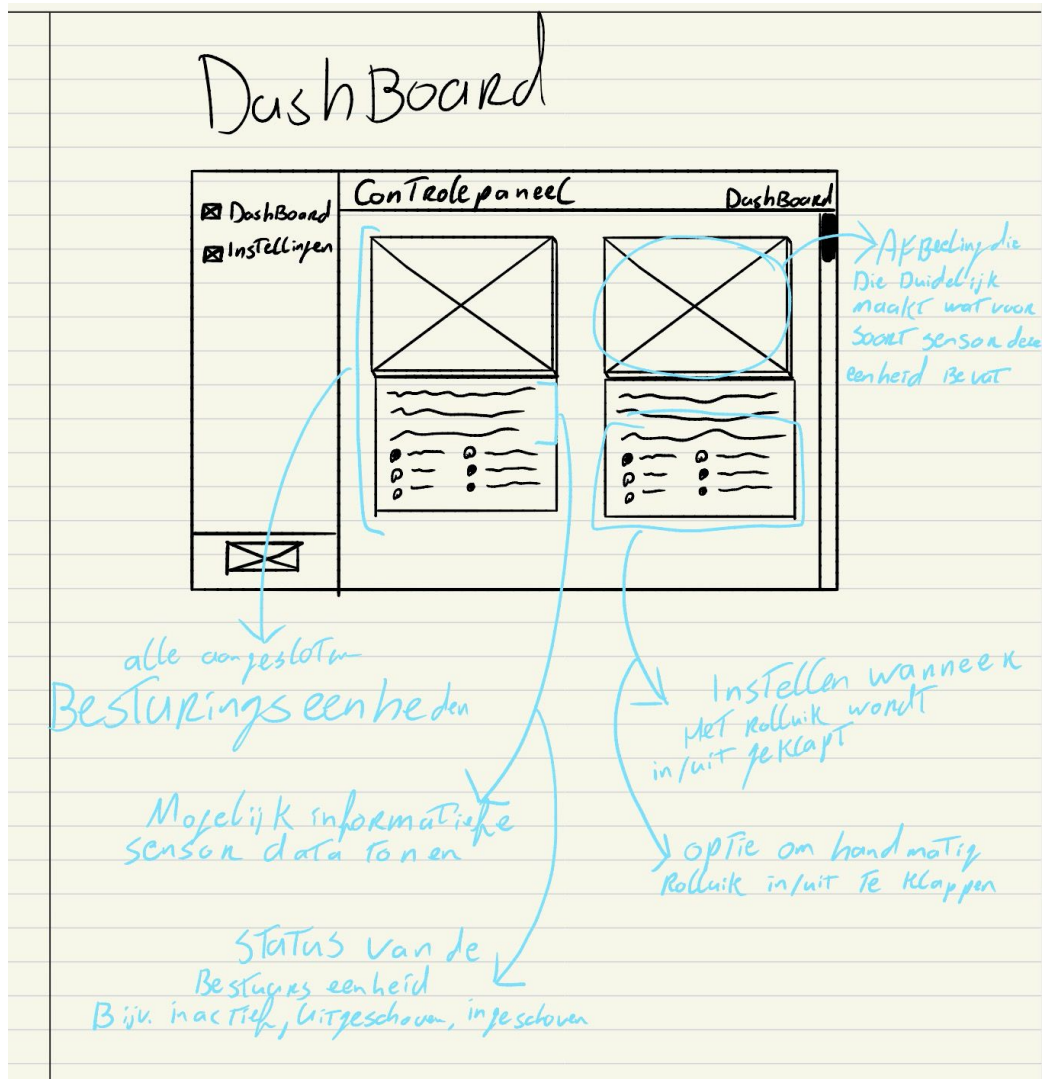 DashBoard
ConTRolepaneel
DashBoard
DashBoard
InsTellingen
AFBeelingdie
Die Duidelijk
maakt wat voor
Soort sensor deze
eenheid Bevat
alle aangesloten
BesTuRingseenheden
InsTellen wanneer
Het Rolluik wordt
in/uit geKlapT
Mogelijk informatiefe
sensor data Tonen
opTie om handmatig
Rolluik in/uit Te Klappen
STaTus van de
BesTuurs eenheid
Bijv. inacTief, UiTgeschoven, ingeschoven